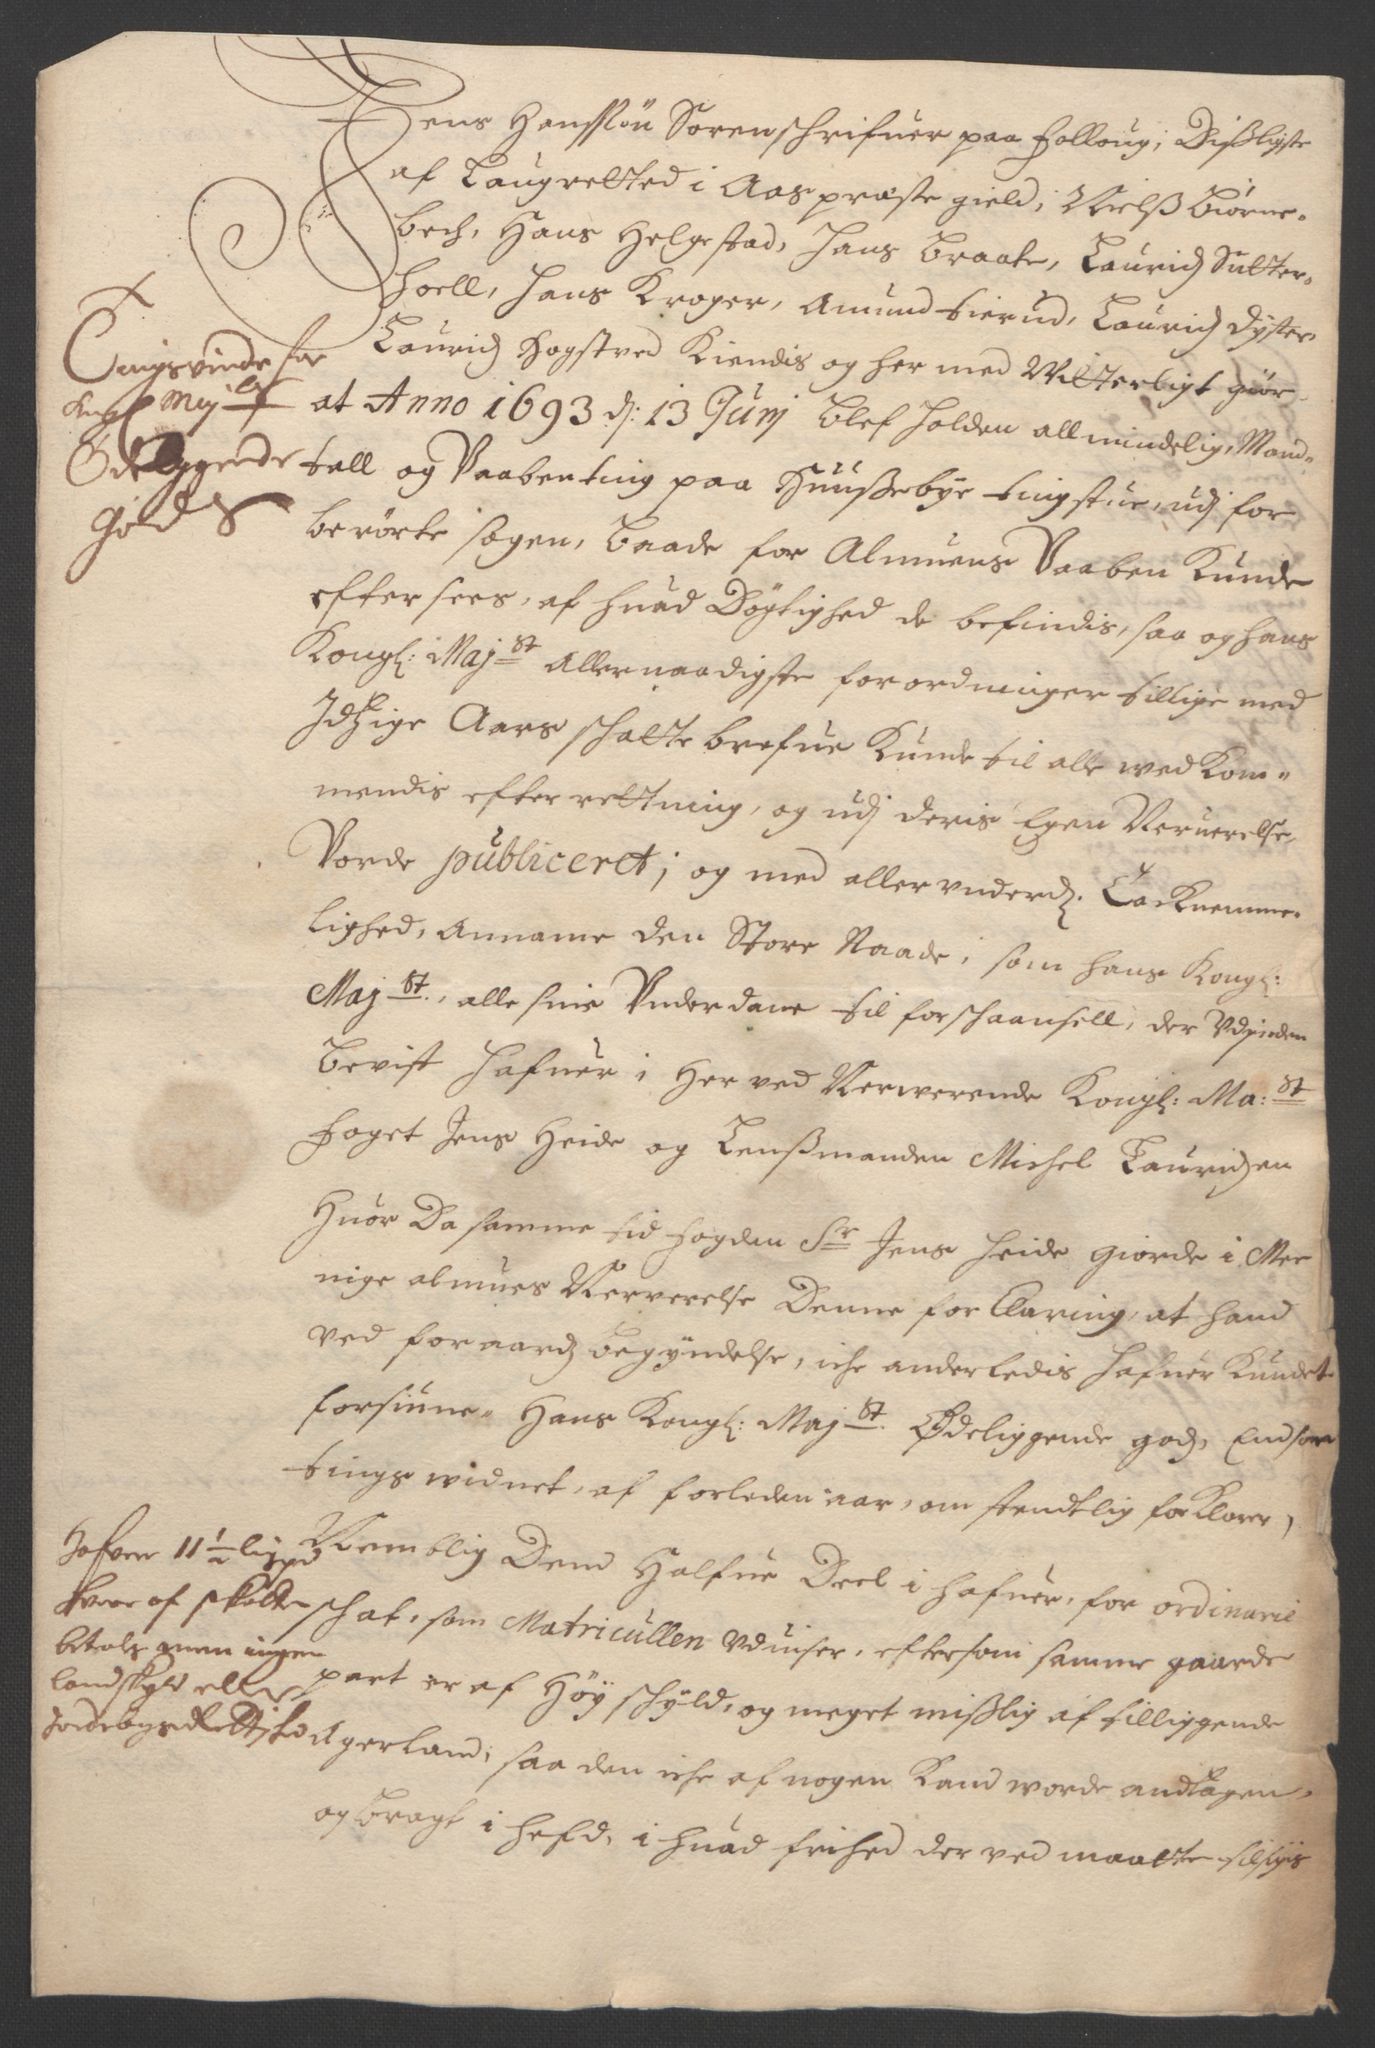 Jens Hansøn Sorenschrifuer paa Folloug; Dissligiste
af Laugretted i Aas præste gield; Nielß Biørne-
bech, Hans Helgestad, Hans Braate, Lauridz Sutter-
hoell, Hans Kroger, Amund tierud, Lauridz Dyster,
Lauridz Hogstved Kiendis og her med Witterligt giør
at Anno 1693 d: 13 Junj blef holden allmindelig, Mand-
tall og Vaabenting paa Huußebye tingstue, udj for
berørte sogen, baade for Almuens Vaaben Kunde
eftersees, af huad Døgtighed de befindis, saa og hans
Kongl: Majst allernaadigste forordninger tillige med
Idtzige Aars schatte brefue Kunde til alle wedkom-
mendis efterrettning, og udj deris Egen Neruerelse,
Vorde publiceret; og med allerunderd. Tacknemme-
lighed, anname den Store Naade, som hans Kongl:
Majst., alle sine Vnderdane til forschaansell, der Vdjinden
bevist hafuer i Her ved Nerwerende Kongl: Ma:st
foget Jens Heide og Lenßmanden Michel Lauridzen
Huor Da samme tid fogden Sr Jens Heide giorde i Mee
nige almues Nerverelse Denne forClaring, at hand
ved foraardz begyndelse, iche anderledis hafuer Kundet
forsiune Hans Kongl: Majst. Ødeliggende godz, End som
tings widnet, af forleden aar, omstendelig forKlarer,
Nemblig Dend Halfue Deel i Hafuer, for ordinarie
schat, som Matricullen Vduiser, eftersom samme gaarde
part er af Høy schyld, og meget mißlig af tilliggende
Agerland; saa den iche af nogen Kand worde andtagen,
og bragt i hefd, i huad frihed der ved maatte tilsiis
Tingsvinde for
Kngl Mayst
Ødeliggende
Gods
Hafuer 11½ lispd
huor af skatten
betals men ingen
landskyld eller
Jordebogs Rettighed